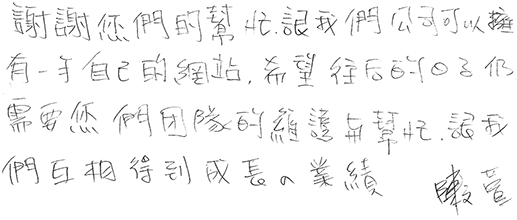 謝謝您們的幫忙.讓我們公司可以擁
有一手自己的網站.希望往后的日子仍
需要您們团隊的維護与幫忙.讓我
們互相得到成長の業績
陳萱